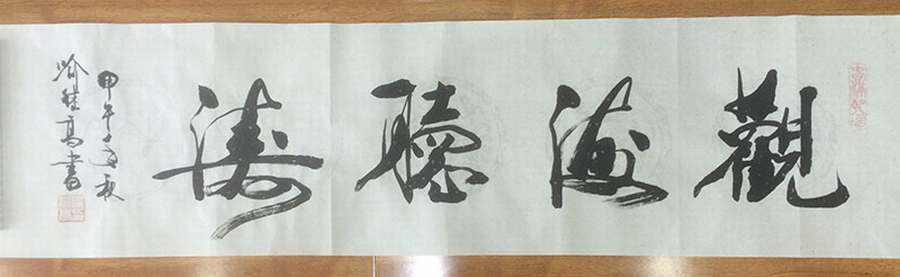 觀海聽濤
甲午之秋
高書